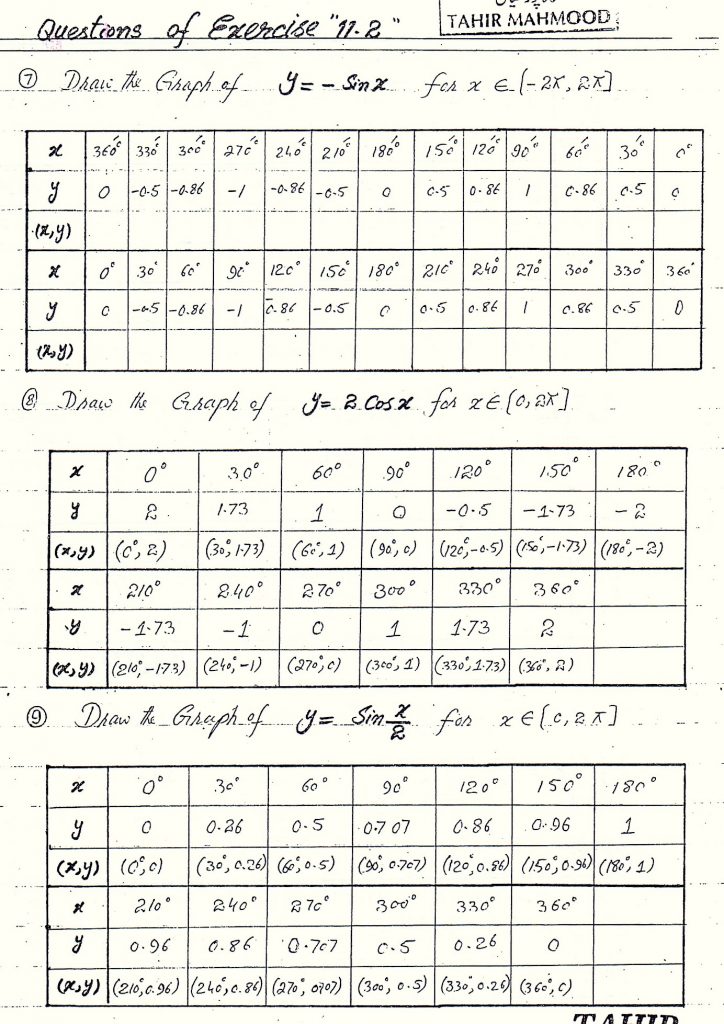 Questions of Exercise "11.2"
TAHIR MAHMOOD
⑦ Draw the Graph of y = - Sin x for x ∈ [-2π, 2π]
x 360° 330° 300° 270° 240° 210° 180° 150° 120° 90° 60° 30° 0°
y 0 -0.5 -0.86 -1 -0.86 -0.5 0 0.5 0.86 1 0.86 0.5 0
(x,y)
x 0° 30° 60° 90° 120° 150° 180° 210° 240° 270° 300° 330° 360°
y 0 -0.5 -0.86 -1 -0.86 -0.5 0 0.5 0.86 1 0.86 0.5 0
(x,y)
⑧ Draw the Graph of y = 2 Cos x for x ∈ [0, 2π]
x 0° 30° 60° 90° 120° 150° 180°
y 2 1.73 1 0 -0.5 -1.73 -2
(x,y) (0°, 2) (30°, 1.73) (60°, 1) (90°, 0) (120°, -0.5) (150°, -1.73) (180°, -2)
x 210° 240° 270° 300° 330° 360°
y -1.73 -1 0 1 1.73 2
(x,y) (210°, -1.73) (240°, -1) (270°, 0) (300°, 1) (330°, 1.73) (360°, 2)
⑨ Draw the Graph of y = Sin x/2 for x ∈ [0, 2π]
x 0° 30° 60° 90° 120° 150° 180°
y 0 0.26 0.5 0.707 0.86 0.96 1
(x,y) (0°, 0) (30°, 0.26) (60°, 0.5) (90°, 0.707) (120°, 0.86) (150°, 0.96) (180°, 1)
x 210° 240° 270° 300° 330° 360°
y 0.96 0.86 0.707 0.5 0.26 0
(x,y) (210°, 0.96) (240°, 0.86) (270°, 0707) (300°, 0.5) (330°, 0.26) (360°, 0)
TAHIR